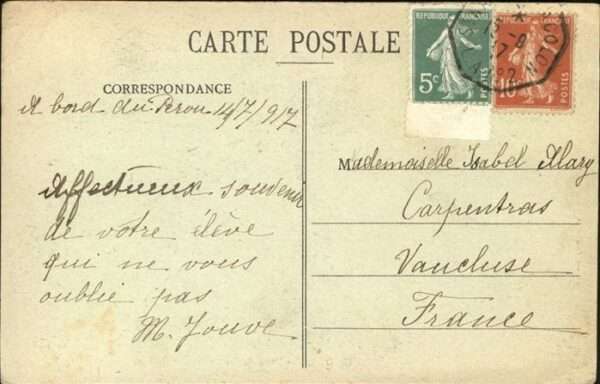 CARTE POSTALE
REPUBLIQUE FRANÇAISE
5c
POSTES
REPUBLIQUE FRANÇAISE
10c
POSTES
COLON
CORRESPONDANCE
A bord du Pérou 14/7/917
Affectueux souvenir
de votre élève
qui ne vous
oublie pas
M. Jouve
Mademoiselle Isabel Alary
Carpentras
Vaucluse
France